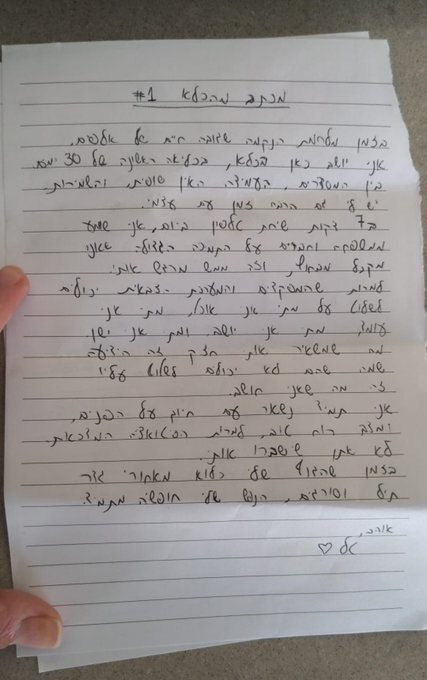 מכתב מהכלא #1
בזמן מלחמת הנקמה שגובה חיים של אלפים,
אני יושב כאן בכלא, בכליאה ראשונה של 30 ימים.
בין המסדרים, העמידה האין סופית, והשמירות,
יש לי גם הרבה זמן עם עצמי.
ב7 דקות שיחת טלפון ביום, אני שומע
ממשפחה וחברים על התמיכה הגדולה שאני
מקבל מבחוץ, וזה ממש מרגש אותי.
למרות שהמפקדים והמערכת הצבאית יכולים
לשלוט על מתי אני אוכל, מתי אני
עומד, מתי אני יושב ומתי אני ישן.
מה שמשאיר אותי חזק זה הידיעה
שמה שהם לא יכולים לשלוט עליו
זה מה שאני חושב.
אני תמיד נשאר עם חיוך על הפנים,
ומצב רוח טוב, למרות הסיטואציה המדכאת.
לא אתן שישברו אותי.
בזמן שהגוף שלי כלוא מאחורי גדר
תיל וסורגים, הנפש שלי חופשיה מתמיד
אוהב,
♡